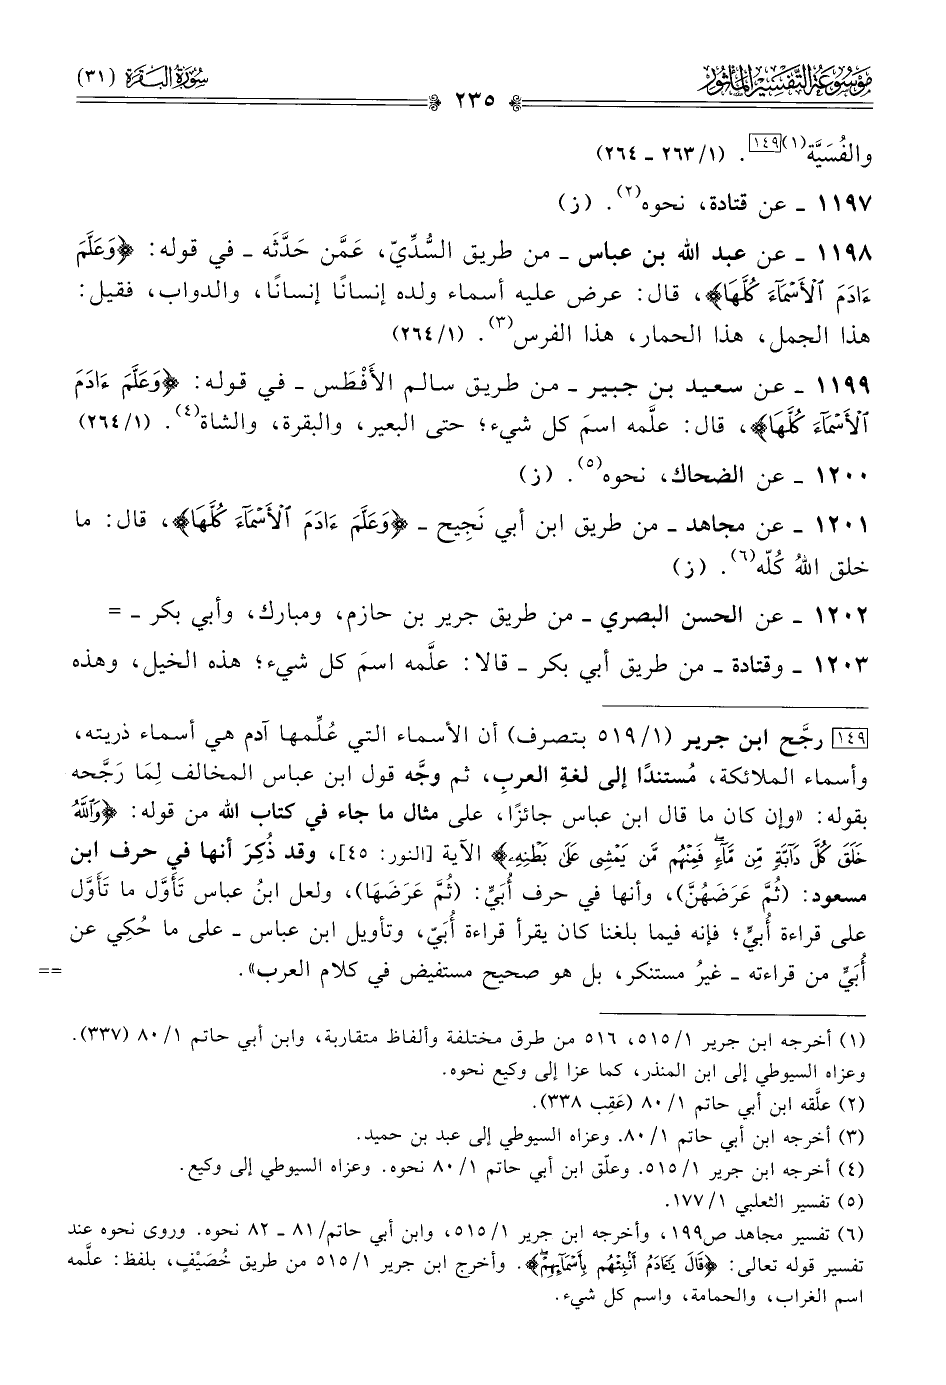 مَوْسُوعَة التَّفْسِير المَأْثُور
سُورَةُ البَقَرَة (٣١)
٢٣٥
والفُسَيَّة(١)[١٤٩]. (١/ ٢٦٣ ـ ٢٦٤)
١١٩٧ ـ عن قتادة، نحوه(٢). (ز)
١١٩٨ ـ عن عبد الله بن عباس ـ من طريق السُّدِّيّ، عَمَّن حَدَّثَه ـ في قوله: ﴿وَعَلَّمَ
ءَادَمَ ٱلْأَسْمَآءَ كُلَّهَا﴾، قال: عرض عليه أسماء ولده إنسانًا إنسانًا، والدواب، فقيل:
هذا الجمل، هذا الحمار، هذا الفرس(٣). (١/ ٢٦٤)
١١٩٩ ـ عن سعيد بن جبير ـ من طريق سالم الأَفْطَس ـ في قوله: ﴿وَعَلَّمَ ءَادَمَ
ٱلْأَسْمَآءَ كُلَّهَا﴾، قال: علَّمه اسمَ كل شيء؛ حتى البعير، والبقرة، والشاة(٤). (١/ ٢٦٤)
١٢٠٠ ـ عن الضحاك، نحوه(٥). (ز)
١٢٠١ ـ عن مجاهد ـ من طريق ابن أبي نَجِيح ـ ﴿وَعَلَّمَ ءَادَمَ ٱلْأَسْمَآءَ كُلَّهَا﴾، قال: ما
خلق اللهُ كُلّه(٦). (ز)
١٢٠٢ ـ عن الحسن البصري ـ من طريق جرير بن حازم، ومبارك، وأبي بكر ـ =
١٢٠٣ ـ وقتادة ـ من طريق أبي بكر ـ قالا: علَّمه اسمَ كل شيء؛ هذه الخيل، وهذه
[١٤٩] رجَّح ابن جرير (١/ ٥١٩ بتصرف) أن الأسماء التي عُلِّمها آدم هي أسماء ذريته،
وأسماء الملائكة، مُستندًا إلى لغةِ العربِ، ثم وجَّه قول ابن عباس المخالف لِمَا رَجَّحه
بقوله: «وإن كان ما قال ابن عباس جائزًا، على مثال ما جاء في كتاب الله من قوله: ﴿وَٱللَّهُ
خَلَقَ كُلَّ دَآبَّةٍ مِّن مَّآءٍۖ فَمِنْهُم مَّن يَمْشِى عَلَىٰ بَطْنِهِۦ﴾ الآية [النور: ٤٥]، وقد ذُكِرَ أنها في حرف ابن
مسعود: (ثُمَّ عَرَضَهُنَّ)، وأنها في حرف أُبَيٍّ: (ثُمَّ عَرَضَهَا)، ولعل ابنُ عباس تَأَوَّل ما تَأَوَّل
على قراءة أُبيٍّ؛ فإنه فيما بلغنا كان يقرأ قراءة أُبَيّ، وتأويل ابن عباس ـ على ما حُكِي عن
أُبَيٍّ من قراءته ـ غيرُ مستنكر، بل هو صحيح مستفيض في كلام العرب». ==
(١) أخرجه ابن جرير ١/ ٥١٥، ٥١٦ من طرق مختلفة وألفاظ متقاربة، وابن أبي حاتم ١/ ٨٠ (٣٣٧).
وعزاه السيوطي إلى ابن المنذر، كما عزا إلى وكيع نحوه.
(٢) علَّقه ابن أبي حاتم ١/ ٨٠ (عَقِب ٣٣٨).
(٣) أخرجه ابن أبي حاتم ١/ ٨٠. وعزاه السيوطي إلى عبد بن حميد.
(٤) أخرجه ابن جرير ١/ ٥١٥. وعلّق ابن أبي حاتم ١/ ٨٠ نحوه. وعزاه السيوطي إلى وكيع.
(٥) تفسير الثعلبي ١/ ١٧٧.
(٦) تفسير مجاهد ص١٩٩، وأخرجه ابن جرير ١/ ٥١٥، وابن أبي حاتم/ ٨١ ـ ٨٢ نحوه. وروى نحوه عند
تفسير قوله تعالى: ﴿قَالَ يَـٰٓـَٔادَمُ أَنۢبِئْهُم بِأَسْمَآئِهِمْۖ﴾. وأخرج ابن جرير ١/ ٥١٥ من طريق خُصَيْفٍ، بلفظ: علَّمه
اسم الغراب، والحمامة، واسم كل شيء.